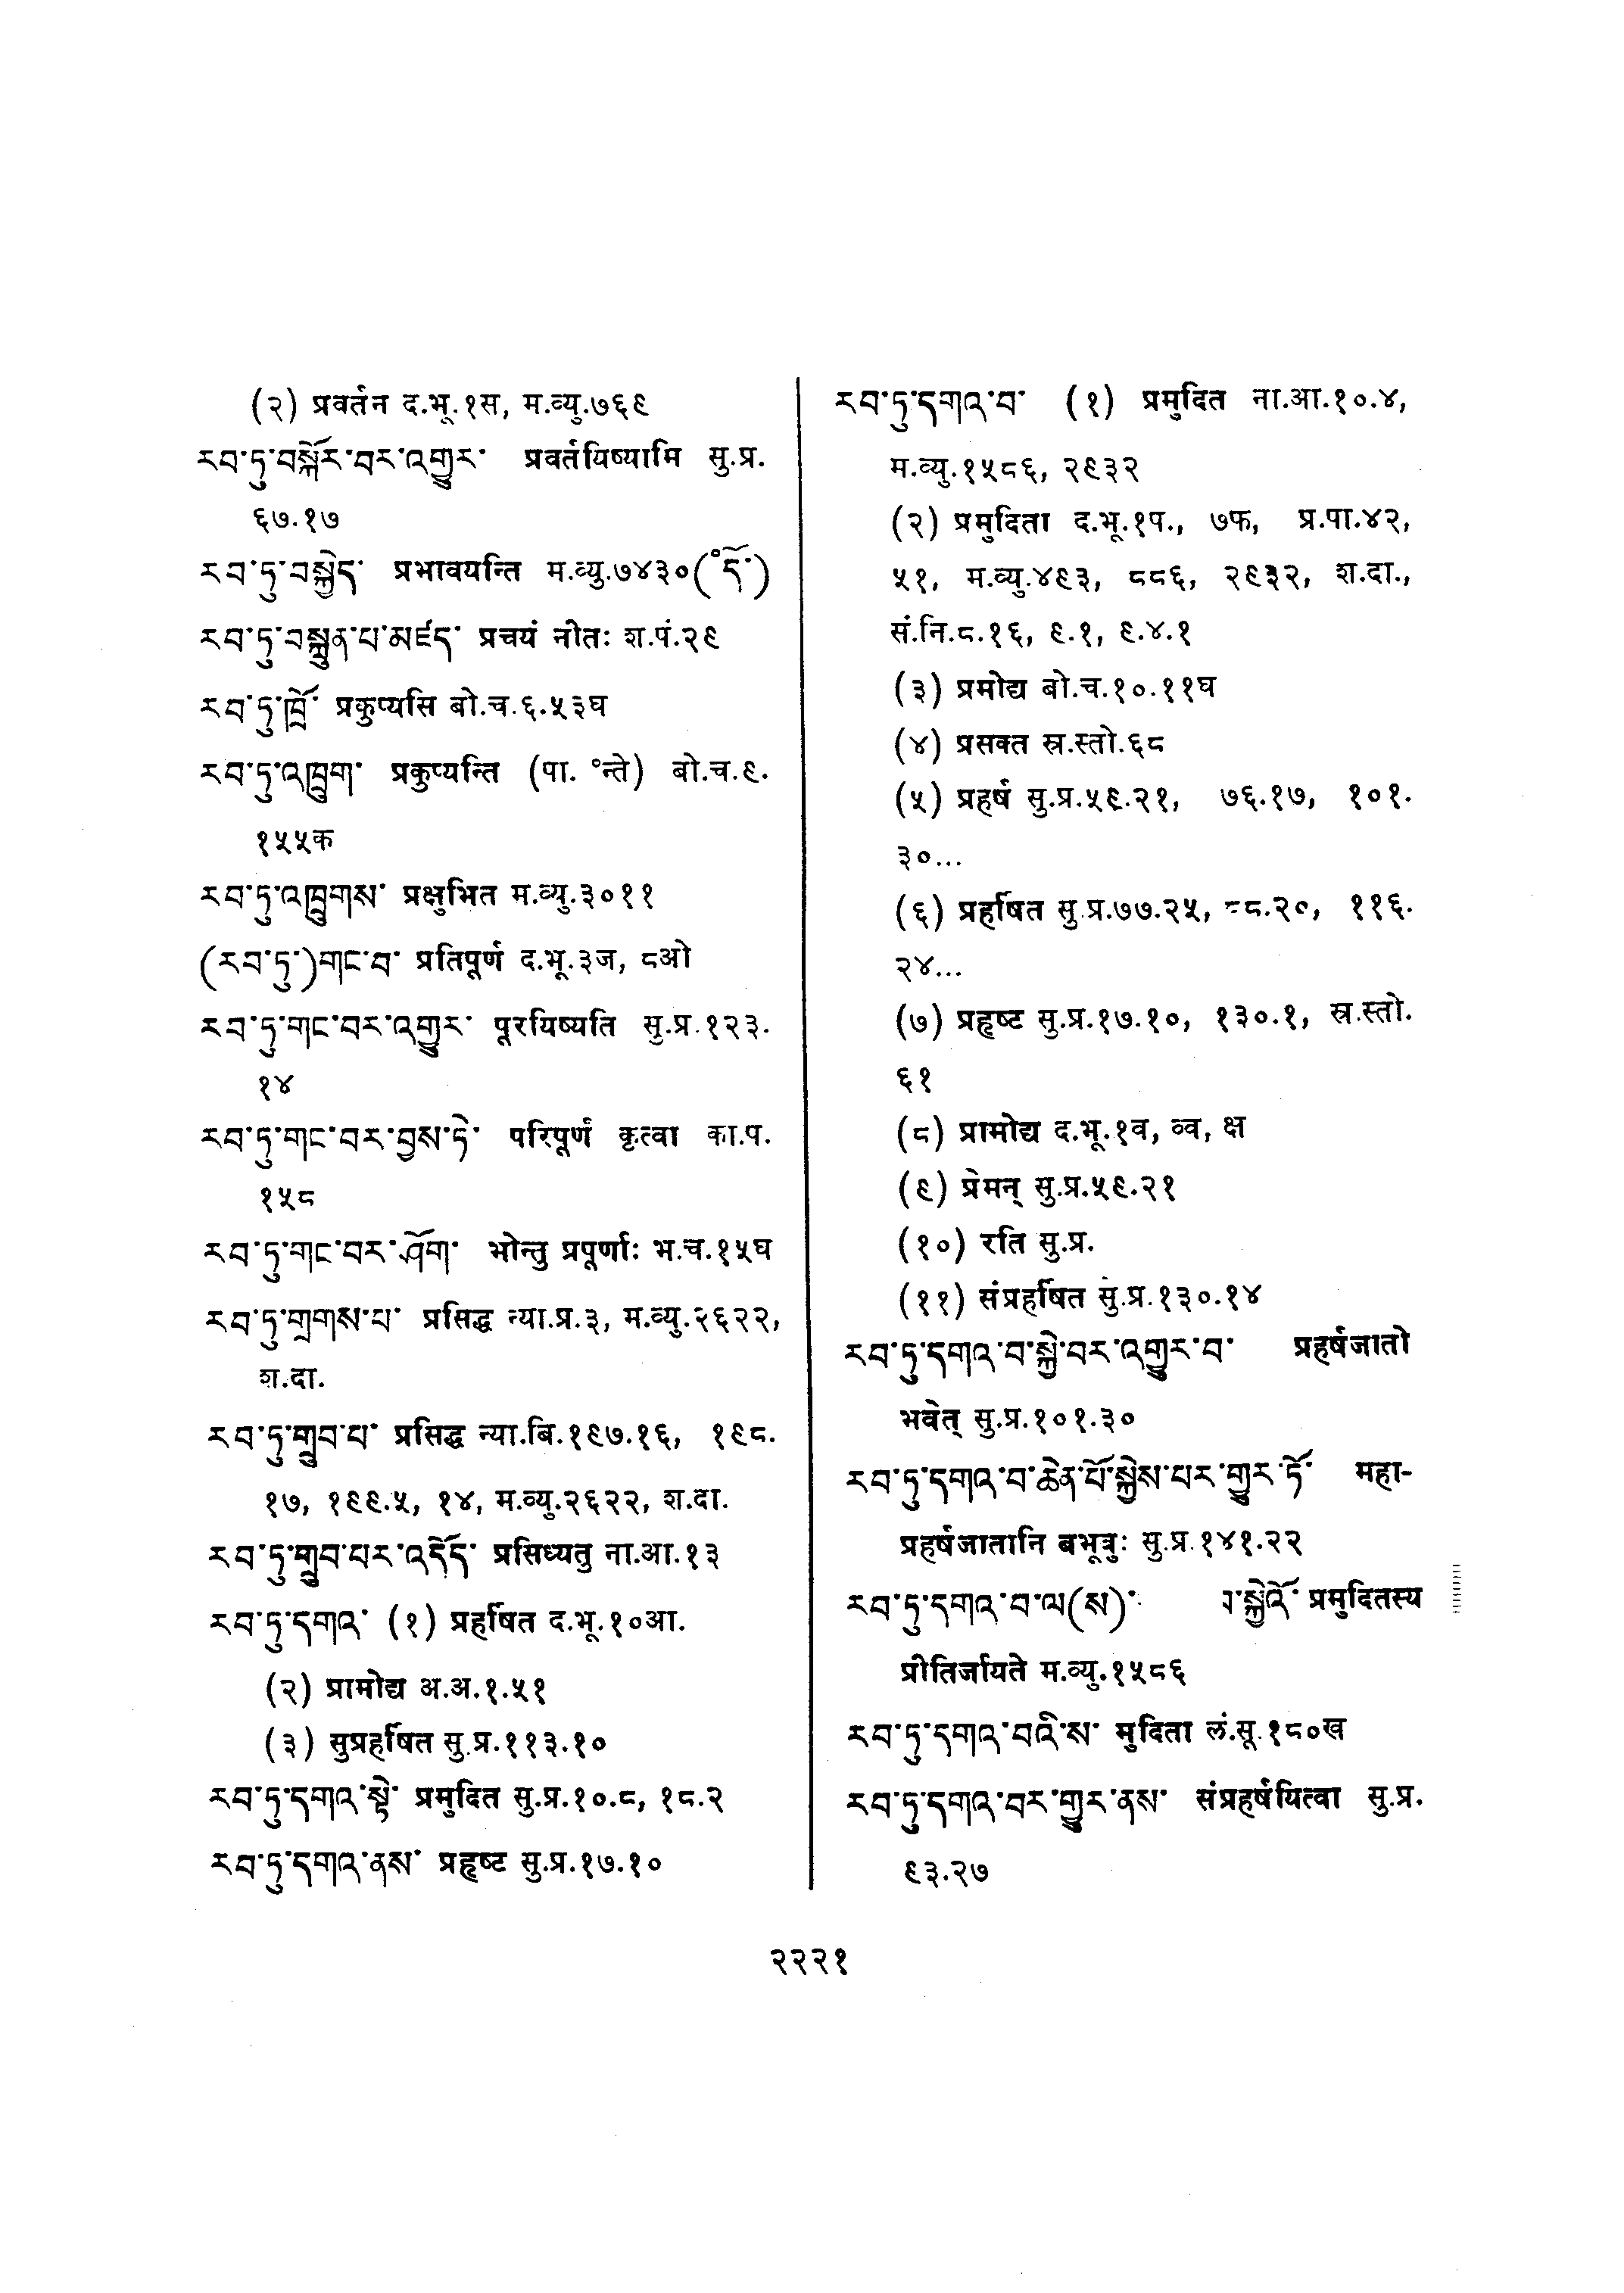 (२) प्रवर्तन द.भू.१स, म.व्यु.७६९
རབ་ཏུ་བསྐོར་བར་འགྱུར་ प्रवर्तयिष्यामि सु.प्र.
६७.१७
རབ་ཏུ་བསྐྱེད་ प्रभावयन्ति म.व्यु.७४३०(°དོ་)
རབ་ཏུ་བསྐྲུན་པ་མཛད་ प्रचयं नीतः श.पं.२९
རབ་ཏུ་ཁྲོ་ प्रकुप्यसि बो.च.६.५३घ
རབ་ཏུ་འཁྲུག་ प्रकुप्यन्ति (पा. °न्ते) बो.च.९.
१५५क
རབ་ཏུ་འཁྲུགས་ प्रक्षुभित म.व्यु.३०११
(རབ་ཏུ་)གང་བ་ प्रतिपूर्ण द.भू.३ज, ८ओ
རབ་ཏུ་གང་བར་འགྱུར་ पूरयिष्यति सु.प्र.१२३.
१४
རབ་ཏུ་གང་བར་བྱས་ཏེ་ परिपूर्णं कृत्वा का.प.
१५८
རབ་ཏུ་གང་བར་ཤོག་ भोन्तु प्रपूर्णाः भ.च.१५घ
རབ་ཏུ་གྲགས་པ་ प्रसिद्ध न्या.प्र.३, म.व्यु.२६२२,
श.दा.
རབ་ཏུ་གྲུབ་པ་ प्रसिद्ध न्या.बि.१९७.१६, १९८.
१७, १९९.५, १४, म.व्यु.२६२२, श.दा.
རབ་ཏུ་གྲུབ་པར་འདོད་ प्रसिध्यतु ना.आ.१३
རབ་ཏུ་དགའ་ (१) प्रहर्षित द.भू.१०आ.
(२) प्रामोद्य अ.अ.१.५१
(३) सुप्रहर्षित सु.प्र.११३.१०
རབ་ཏུ་དགའ་སྟེ་ प्रमुदित सु.प्र.१०.८, १८.२
རབ་ཏུ་དགའ་ནས་ प्रहृष्ट सु.प्र.१७.१०
རབ་ཏུ་དགའ་བ་ (१) प्रमुदित ना.आ.१०.४,
म.व्यु.१५८६, २९३२
(२) प्रमुदिता द.भू.१प., ७फ, प्र.पा.४२,
५१, म.व्यु.४९३, ८८६, २९३२, श.दा.,
सं.नि.८.१६, ९.१, ९.४.१
(३) प्रमोद्य बो.च.१०.११घ
(४) प्रसक्त स्र.स्तो.६८
(५) प्रहर्ष सु.प्र.५९.२१, ७६.१७, १०१.
३०...
(६) प्रहर्षित सु.प्र.७७.२५, ८८.२०, ११६.
२४...
(७) प्रहृष्ट सु.प्र.१७.१०, १३०.१, स्र.स्तो.
६१
(८) प्रामोद्य द.भू.१व, व्व, क्ष
(९) प्रेमन् सु.प्र.५९.२१
(१०) रति सु.प्र.
(११) संप्रहर्षित सु.प्र.१३०.१४
རབ་ཏུ་དགའ་བ་སྐྱེ་བར་འགྱུར་བ་ प्रहर्षजातो
भवेत् सु.प्र.१०१.३०
རབ་ཏུ་དགའ་བ་ཆེན་པོ་སྐྱེས་པར་གྱུར་ཏོ་ महा-
प्रहर्षजातानि बभूवुः सु.प्र.१४१.२२
རབ་ཏུ་དགའ་བ་ལ(ས)་ སྐྱེའོ་ प्रमुदितस्य
प्रीतिर्जायते म.व्यु.१५८६
རབ་ཏུ་དགའ་བའི་ས་ मुदिता लं.सू.१८०ख
རབ་ཏུ་དགའ་བར་གྱུར་ནས་ संप्रहर्षयित्वा सु.प्र.
९३.२७
२२२१